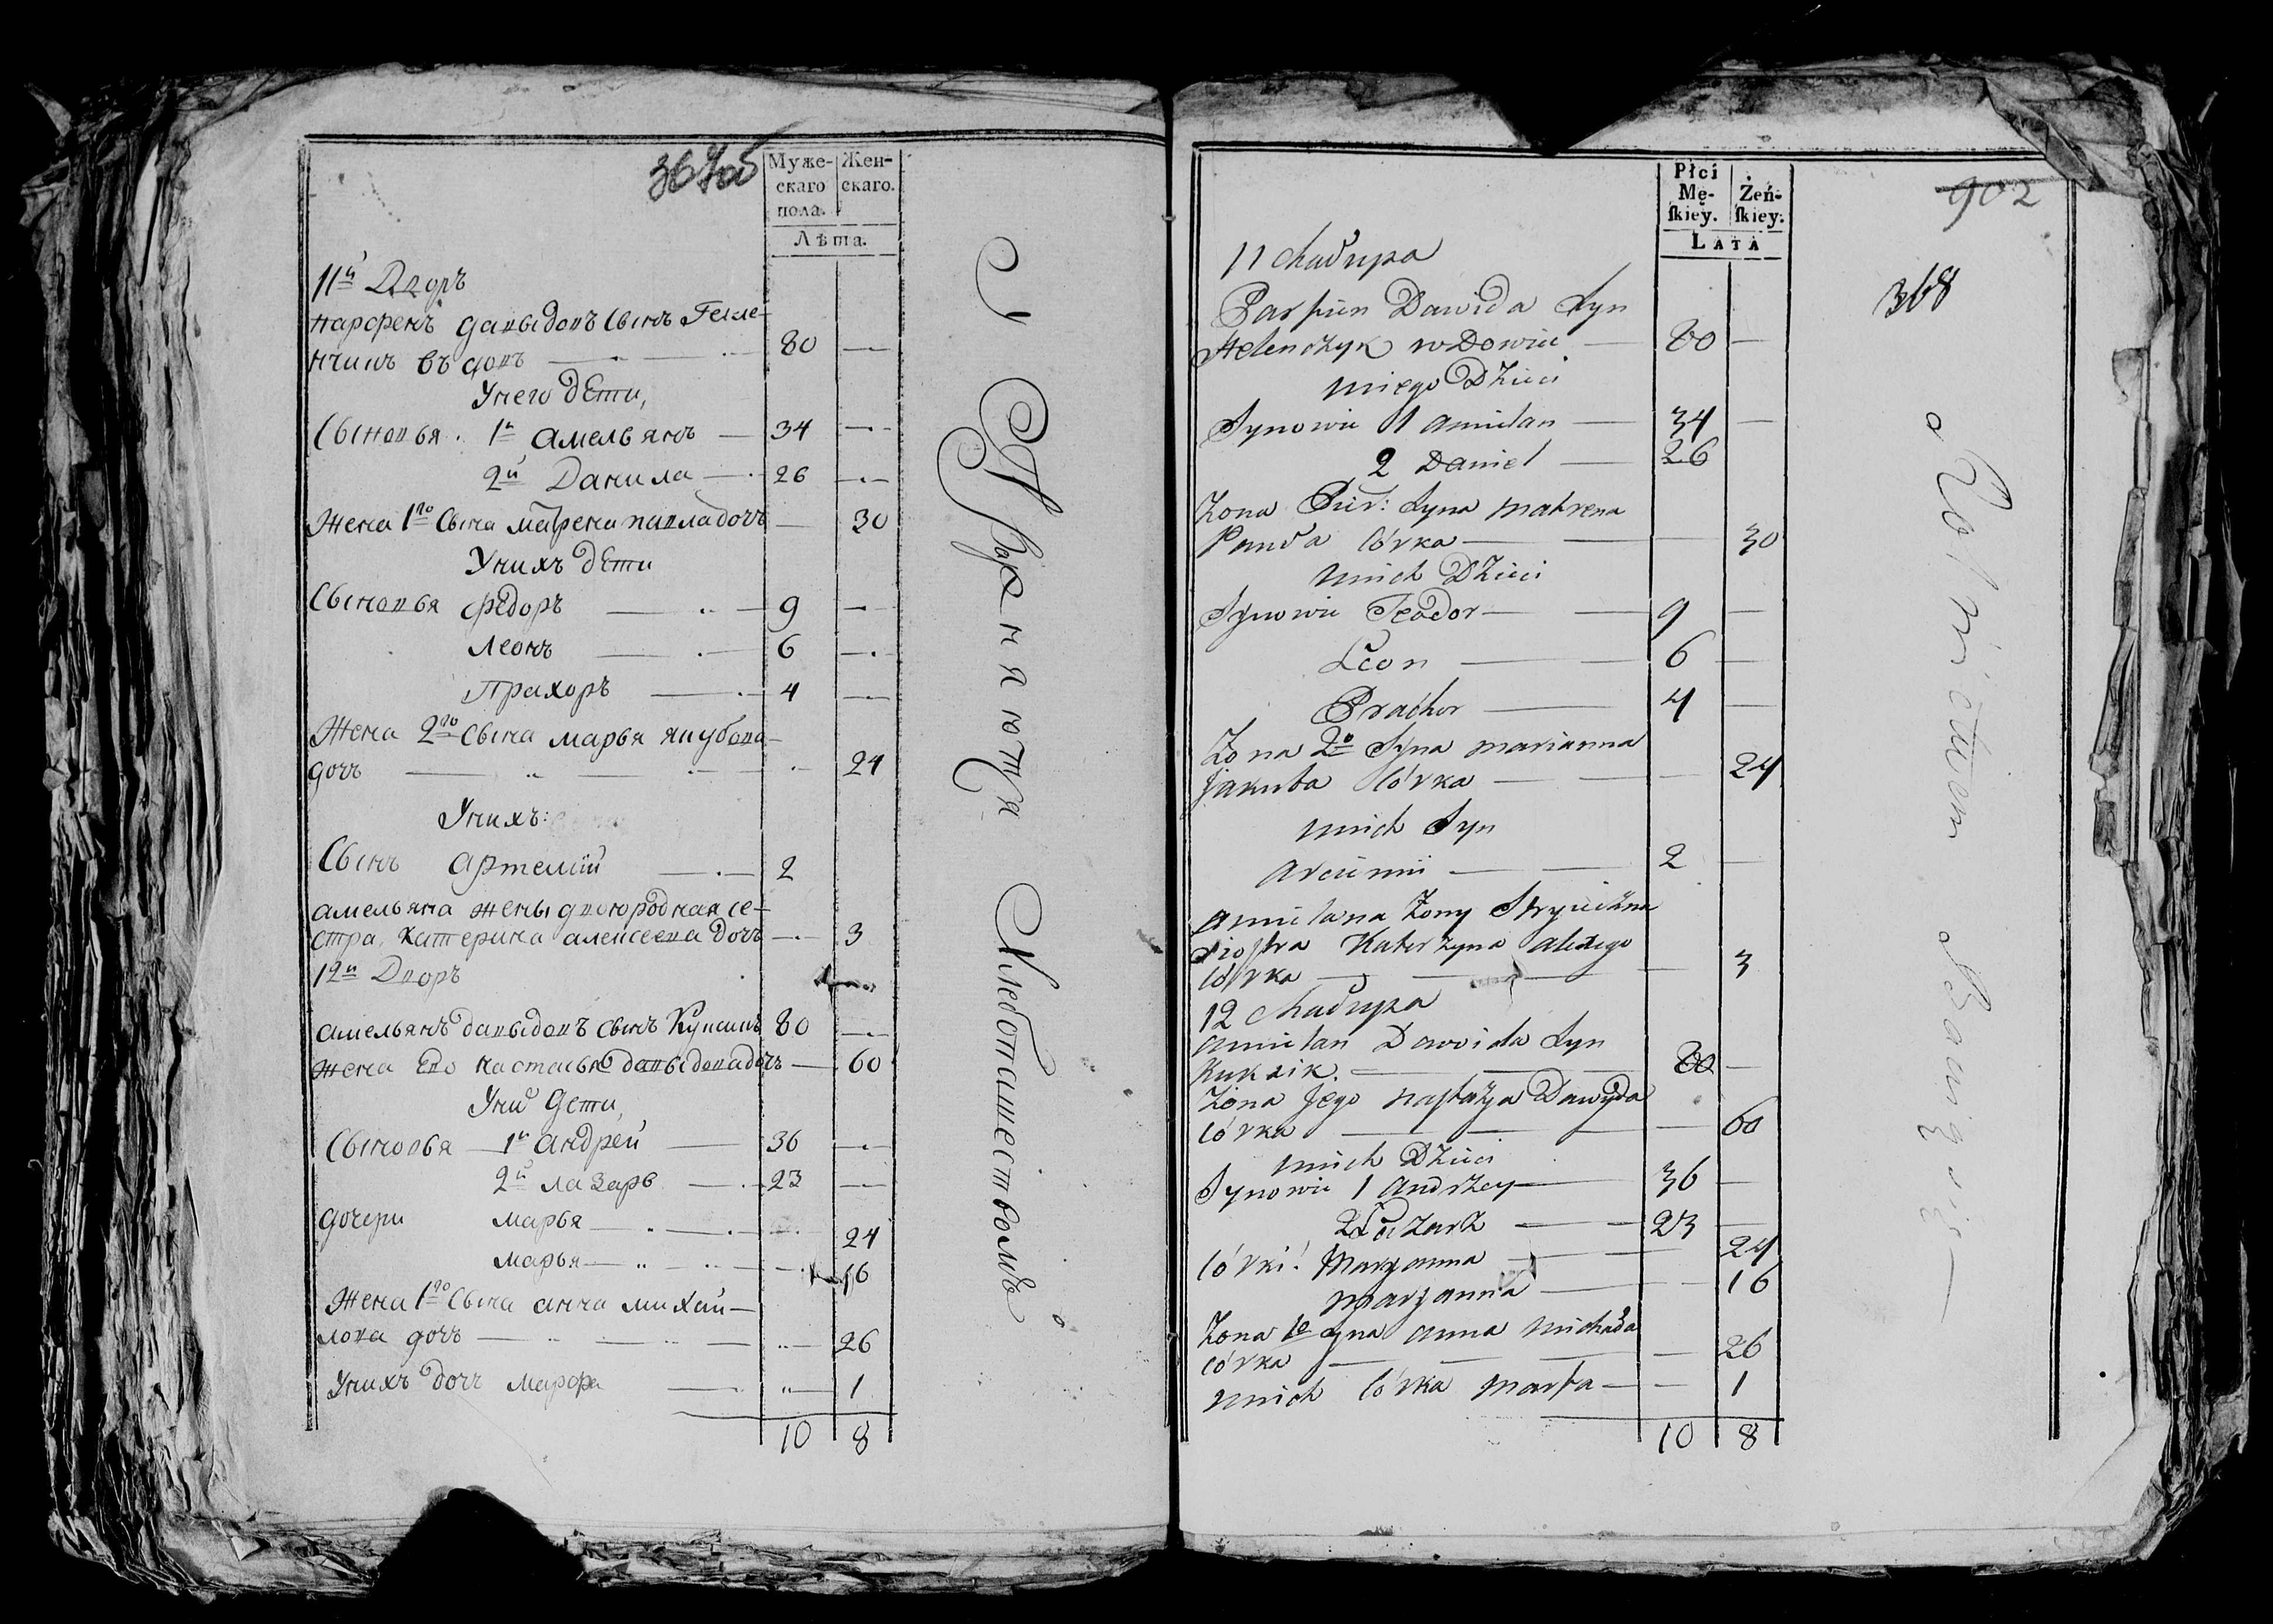 367об
Муже-
скаго
пола.
Жен-
скаго.
Лѣта.
11й Дворъ
парфенъ давыдовъ Сынъ Геле-
нчикъ въдовъ 80
Унего дети,
Сыновья. 1й амельянъ 34
2й Данила 26
Жена 1го Сына матрена павла дочь 30
Унихъ дети
Сыновья федоръ 9
леонъ 6
Прахоръ 4
Жена 2го Сына марья якубова
дочь 24
Унихъ:
Сынъ артемiй 2
амельяна жены двоюродная се-
стра, катерина алексеева дочь 3
12й Дворъ
амельянъ давыдовъ сынъ 80
жена Ево настасья давыдова дочь 60
Уни дети,
Сыновья 1й андрей 36
2й лазарь 23
дочери марья 24
марья 16
Жена 1го Сына анна михай-
лова дочь 26
Унихъ дочь марфа 1
10 8
Хлебопашествомъ
Płci
Mę-
ſkiey.
Żeń-
ſkiey.
LATA
902
368
11 Chałupa
Parfien Dawida Syn
Helenczyk wdowiec 80
uniego Dzieci
Synowie 1 amielan 34
2 Daniel 26
Zona Pier: Syna matrena
Pawła córka 30
unich Dzieci
Synowie Teodor 9
Leon 6
Prachor 4
Zona 2o Syna marianna
Jakuba córka 24
unich Syn
arciemii 2
amielana Zony Stryieczna
siostra Katerzyna
córka 3
12 Chałupa
amielan Dawida Syn
Kuksik. 80
Zona Jego nastazya Dawyda
córka 60
unich Dzieci
Synowie 1 andrzey 36
2 Łazarz 23
córki: Maryanna 24
maryanna 16
Zona 1o syna anna michała
córka 26
unich córka marta 1
10 8
Rolnictwem